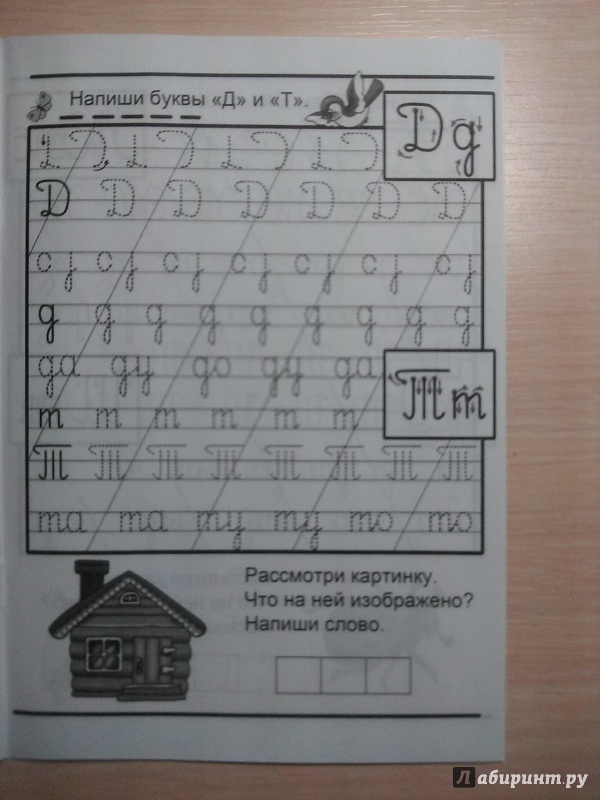 Напиши буквы «Д» и «Т».
Д д
Д Д Д Д Д Д Д
д д д д д д д д д
да ду до ду да
Т т
т т т т т т
Т Т Т Т Т Т Т Т
та та ту ту то то
Рассмотри картинку.
Что на ней изображено?
Напиши слово.
Лабиринт.ру